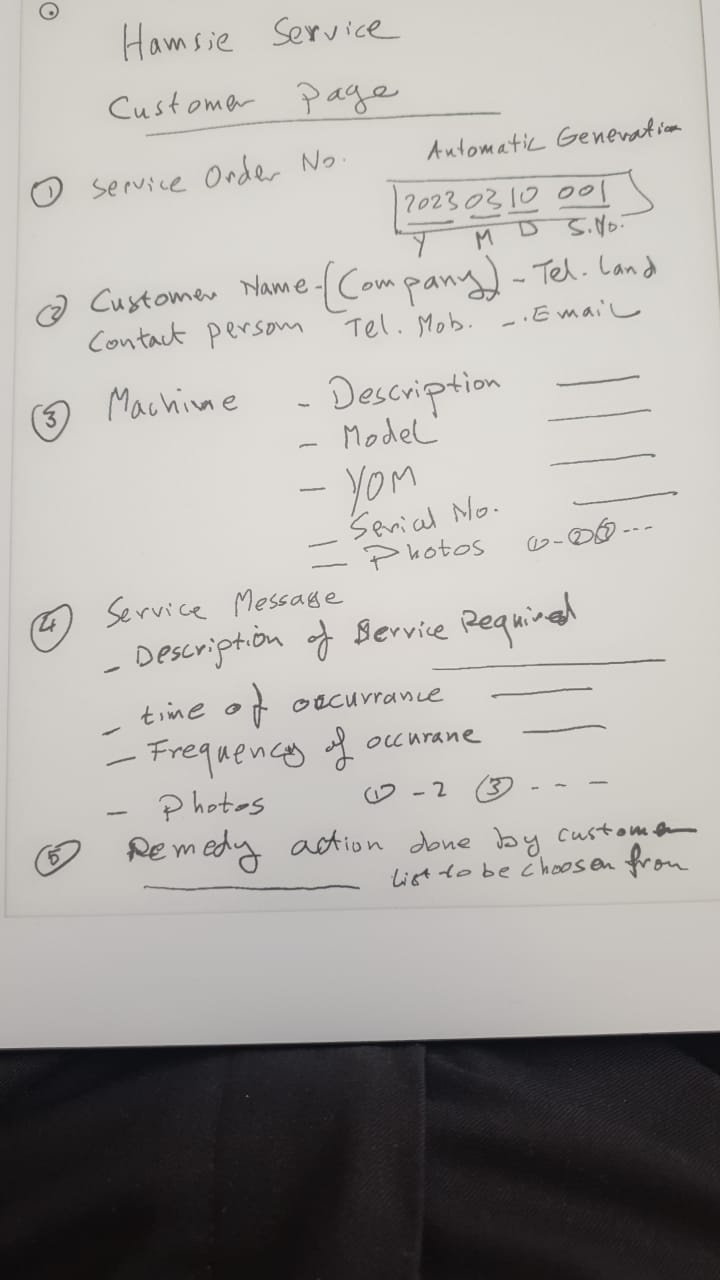 Hamsie Service
Customer Page
① Service Order No. Automatic Generation
2023 03 10 001
Y M D S.No.
② Customer Name - (Company) - Tel. Land
Contact person Tel. Mob. - . Email
③ Machine - Description
- Model
- YOM
- Serial No.
- Photos ① - ② ③ ---
④ Service Message
- Description of Service Required
- time of occurrance
- Frequency of occurane
- Photos ① - 2 ③ - - -
⑤ Remedy action done by customer
list to be choosen from